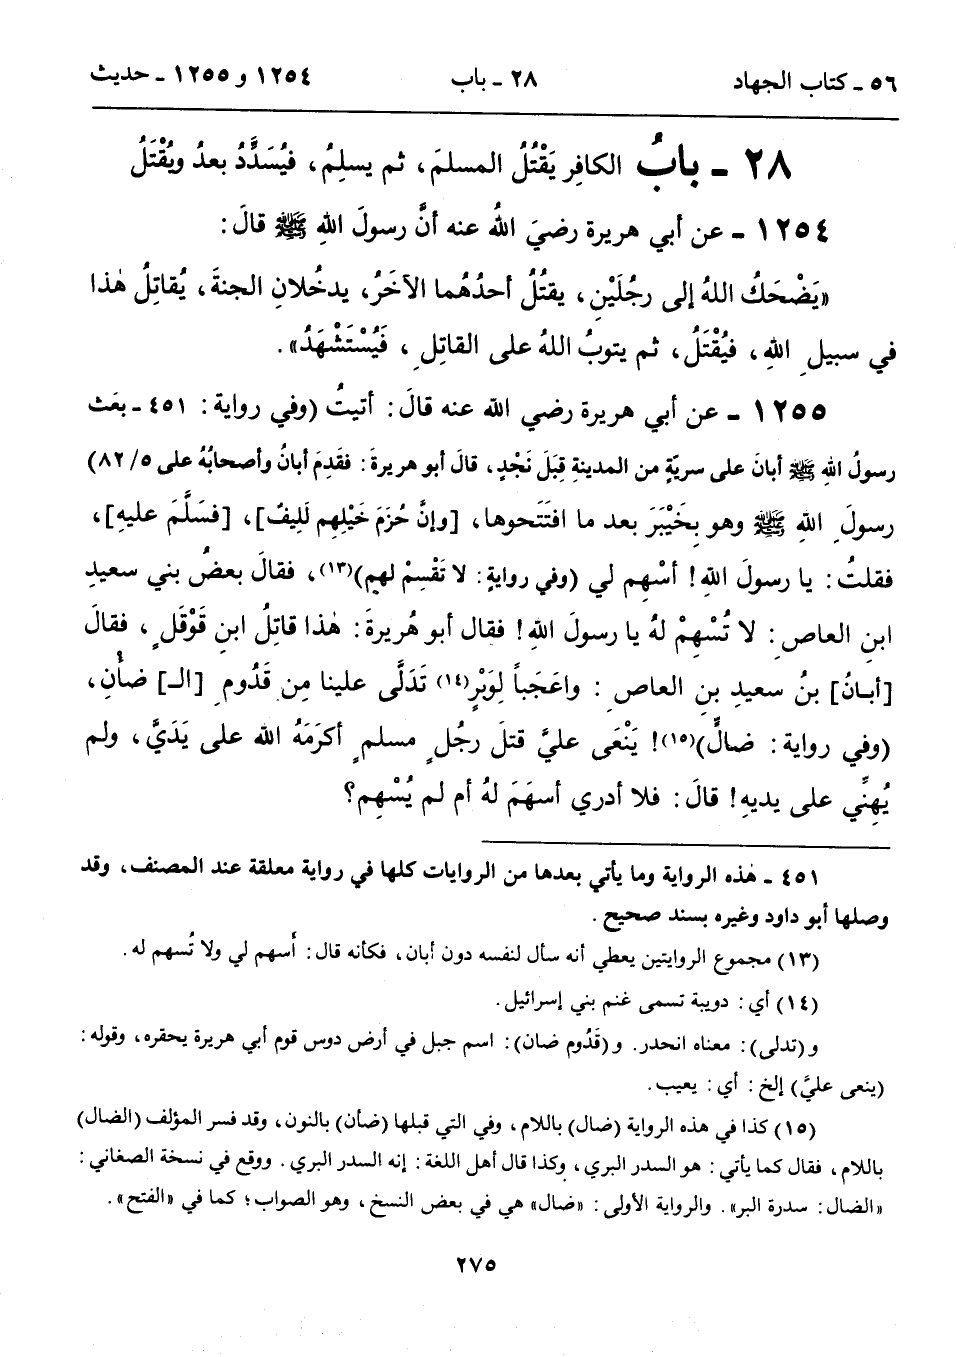 ٥٦ ـ كتاب الجهاد ٢٨ ـ باب ١٢٥٤ و ١٢٥٥ ـ حديث
٢٨ ـ بابُ الكافِر يَقْتُلُ المسلمَ، ثم يسلِمُ، فيُسَدَّدُ بعدُ ويُقْتَلُ
١٢٥٤ ـ عن أبي هريرة رضيَ اللهُ عنه أنَّ رسولَ اللهِ ﷺ قالَ:
«يَضْحَكُ اللهُ إلى رجُلَيْنِ، يقتُلُ أحدُهُما الآخَرُ، يدخُلانِ الجنةَ، يُقاتِلُ هٰذا
في سبيلِ اللهِ، فيُقْتَلُ، ثم يتوبُ اللهُ على القاتلِ، فَيُسْتَشْهَدُ».
١٢٥٥ ـ عن أبي هريرة رضي الله عنه قالَ: أتيتُ (وفي رواية: ٤٥١ ـ بعَث
رسولُ اللهِ ﷺ أبانَ على سريّةٍ من المدينةِ قِبَلَ نَجْدٍ، قالَ أبو هريرةَ: فقَدِمَ أبانُ وأصحابُهُ على ٨٢/٥)
رسولَ اللهِ ﷺ وهو بِخَيْبَرَ بعد ما افتَتَحوها، [وإنَّ حُزَمَ خَيْلِهِم لَلِيفٌ]، [فسَلَّمَ عليهِ]،
فقلتُ: يا رسولَ اللهِ! أسْهِم لي (وفي روايةٍ: لا تَقْسِمْ لهم)(١٣)، فقالَ بعضُ بني سعيدِ
ابنِ العاصِ: لا تُسْهِمْ لهُ يا رسولَ اللهِ! فقال أبو هُريرةَ: هٰذا قاتِلُ ابنِ قَوْقَلٍ، فقالَ
[أبـانُ] بنُ سعيدِ بنِ العاصِ: واعَجَباً لِوَبْرٍ(١٤) تَدَلَّى علينا مِن قَدُومِ [الـ] ضأْنِ،
(وفي رواية: ضالٍّ)(١٥)! يَنْعَى عليَّ قتلَ رجُلٍ مسلمٍ أكرَمَهُ الله على يَدَيَّ، ولم
يُهِنِّي على يديهِ! قالَ: فلا أدري أسهَمَ لهُ أم لم يُسْهِم؟
٤٥١ ـ هٰذه الرواية وما يأتي بعدها من الروايات كلها في رواية معلقة عند المصنف، وقد
وصلها أبو داود وغيره بسند صحيح.
(١٣) مجموع الروايتين يعطي أنه سأل لنفسه دون أبان، فكأنه قال: أَسهم لي ولا تُسهم له.
(١٤) أي: دويبة تسمى غنم بني إسرائيل.
و (تدلى): معناه انحدر. و (قَدُوم ضان): اسم جبل في أرض دوس قوم أبي هريرة يحقره، وقوله:
(ينعى عليَّ) إلخ: أي: يعيب.
(١٥) كذا في هذه الرواية (ضال) باللام، وفي التي قبلها (ضأن) بالنون، وقد فسر المؤلف (الضال)
باللام، فقال كما يأتي: هو السدر البري، وكذا قال أهل اللغة: إنه السدر البري. ووقع في نسخة الصغاني:
«الضال: سدرة البر». والرواية الأولى: «ضال» هي في بعض النسخ، وهو الصواب؛ كما في «الفتح».
٢٧٥